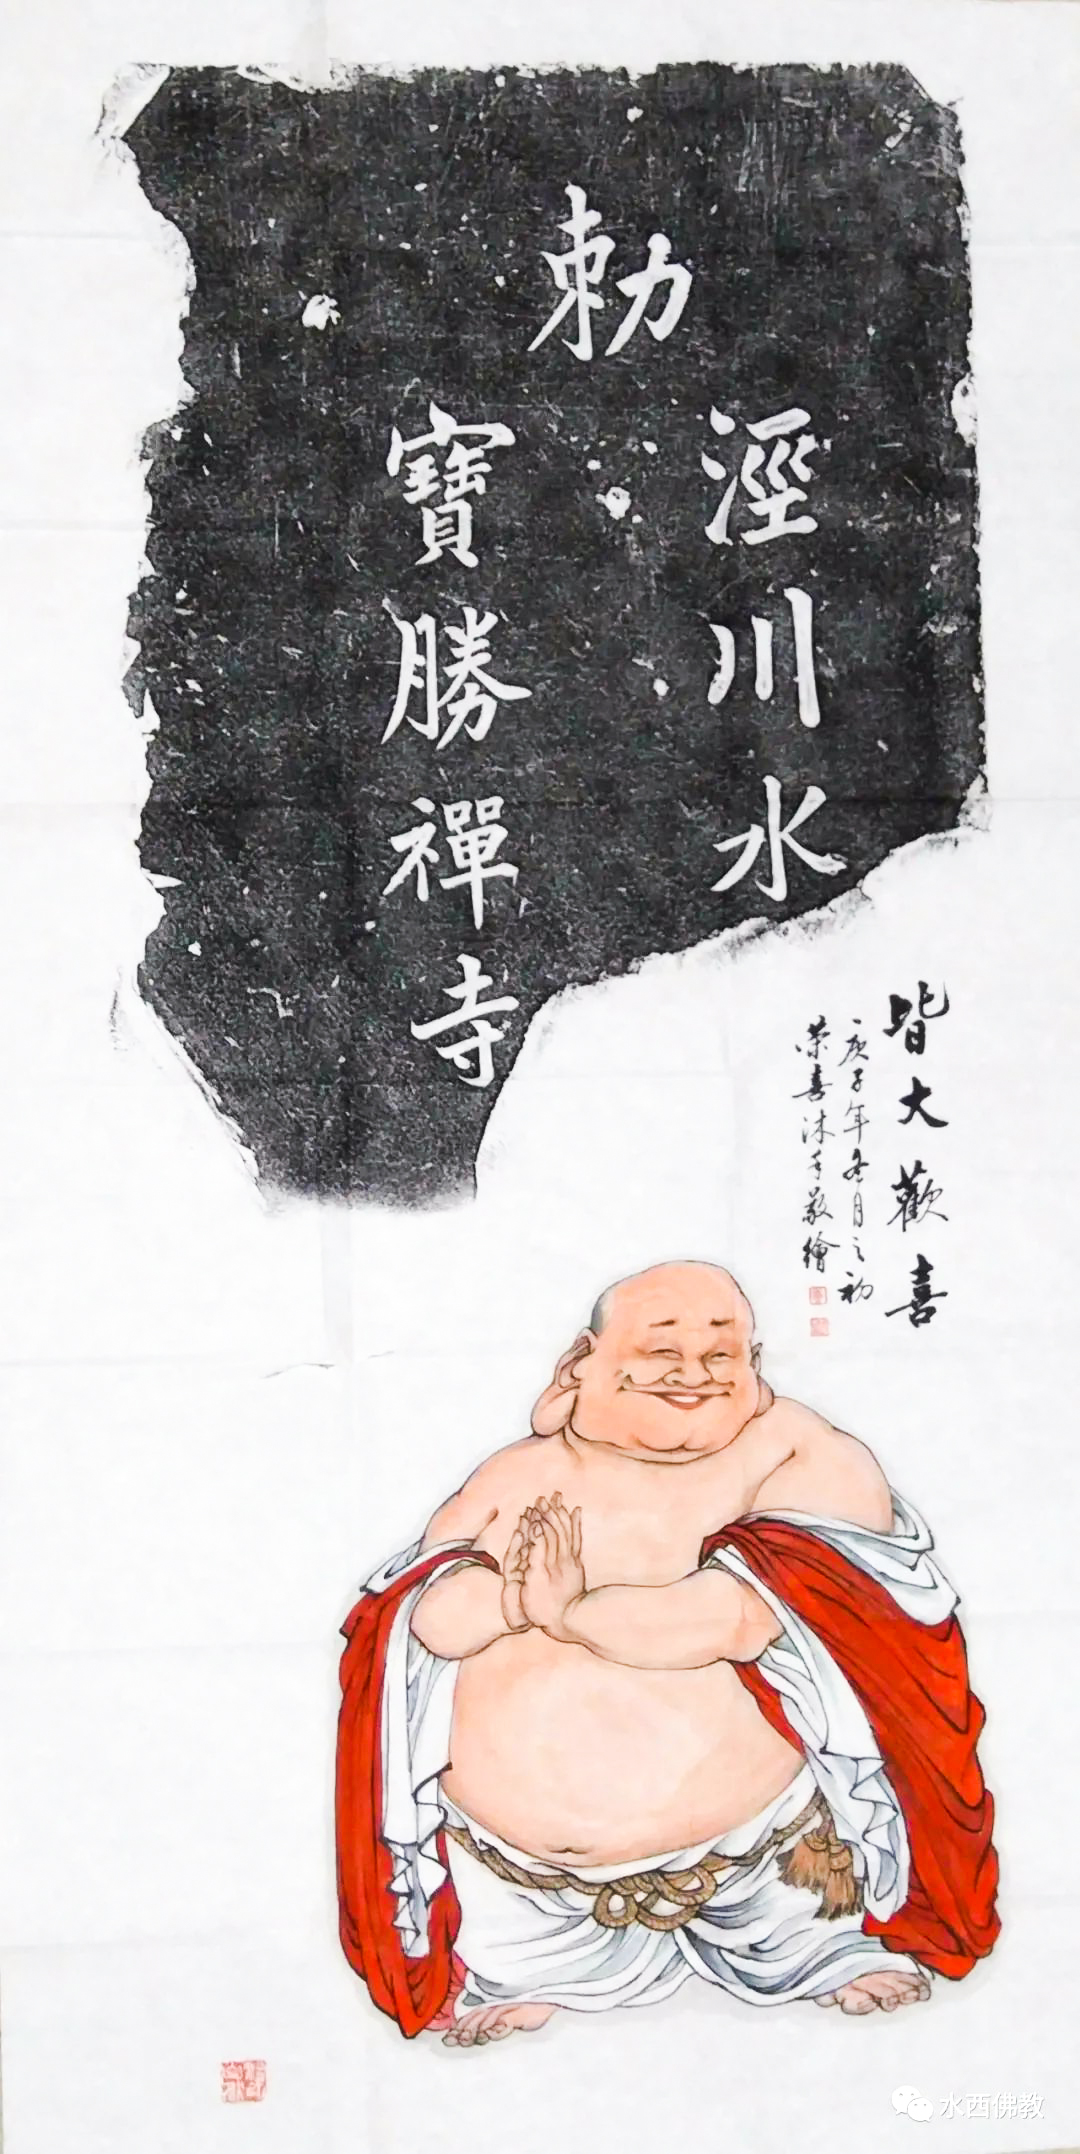 勅
涇川水
寶勝禪寺
皆大歡喜
庚子年冬月之初
荣喜沐手敬繪
水西佛教